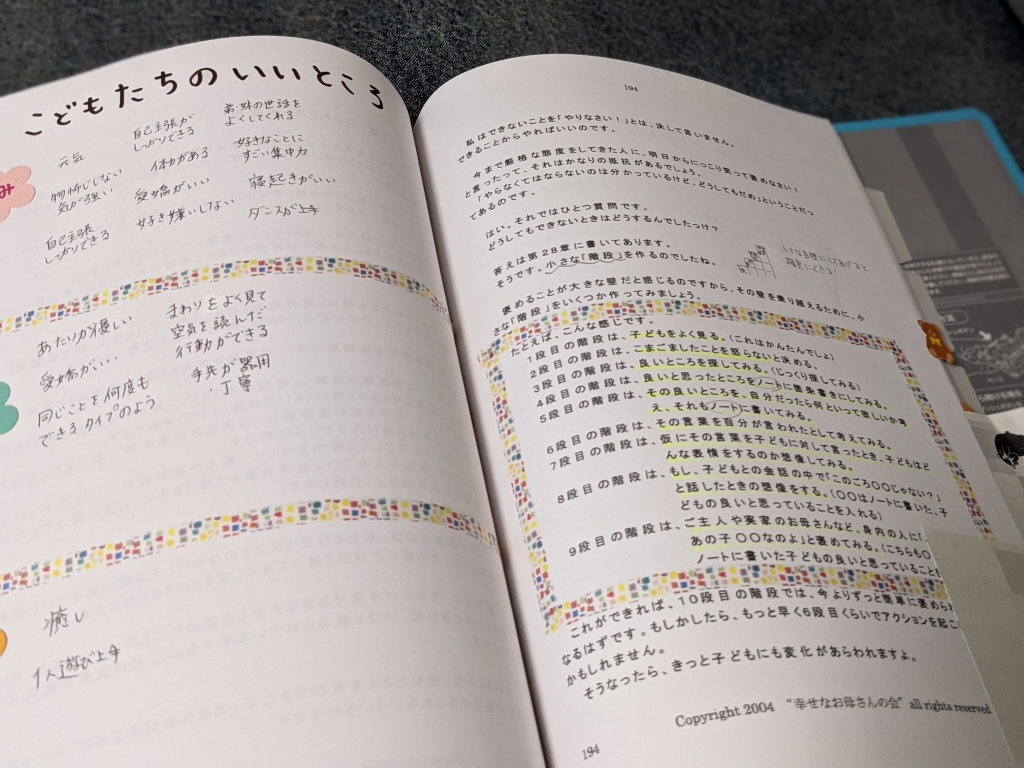 こどもたちのいいところ
み
元気
自己主張が
しっかりできる
弟・妹の世話を
よくしてくれる
物怖じしない
気が強い
体力がある
好きなことに
すごい集中力
愛嬌がいい
寝起きがいい
自己主張
しっかりできる
好き嫌いしない
ダンスが上手
あたりが優しい
まわりをよく見て
空気を読んだ
行動ができる
愛嬌がいい
手先が器用
・丁寧
同じことを何度も
できるタイプのよう
癒し
1人遊び上手
194
私はできないことを「やりなさい!」とは、決して言いません。
できることからやればいいのです。
今まで厳格な態度をしてきた人に、明日からにっこり笑って褒めなさい!
と言ったって、それはかなりの抵抗があるでしょう。
「やらなくてはならないのは分かっているけど、どうしてもだめ」ということだっ
てあるのです。
はい。それではひとつ質問です。
どうしてもできないときはどうするんでしたっけ?
答えは第28章に書いてあります。
そうです。小さな「階段」を作るのでしたね。
褒めることが大きな壁だと感じるのですから、その壁を乗り越えるために、小
さな「階段」をいくつか作ってみましょう。
たとえば、こんな感じです。
1段目の階段は、子どもをよく見る。(これはかんたんでしょ)
2段目の階段は、こまごましたことを怒らないと決める。
3段目の階段は、良いところを探してみる。(じっくり探してみる)
4段目の階段は、良いと思ったところをノートに箇条書きにしてみる。
5段目の階段は、その良いところを、自分だったら何といって欲しいか考
え、それもノートに書いてみる。
6段目の階段は、その言葉を自分が言われたとして考えてみる。
7段目の階段は、仮にその言葉を子どもに対して言ったとき、子どもはど
んな表情をするのか想像してみる。
8段目の階段は、もし、子どもとの会話の中で「このころ〇〇じゃない?」
と話したときの想像をする。(〇〇はノートに書いた、子
どもの良いと思っていることを入れる)
9段目の階段は、ご主人や実家のお母さんなど、身内の人に「
あの子〇〇なのよ」と褒めてみる。(こちらも〇
ノートに書いた子どもの良いと思っていることを
これができれば、10段目の階段では、今よりずっと簡単に褒められ
なるはずです。もしかしたら、もっと早く6段目くらいでアクションを起こ
かもしれません。
そうなったら、きっと子どもにも変化があらわれますよ。
Copyright 2004 "幸せなお母さんの会" all rights reserved
194